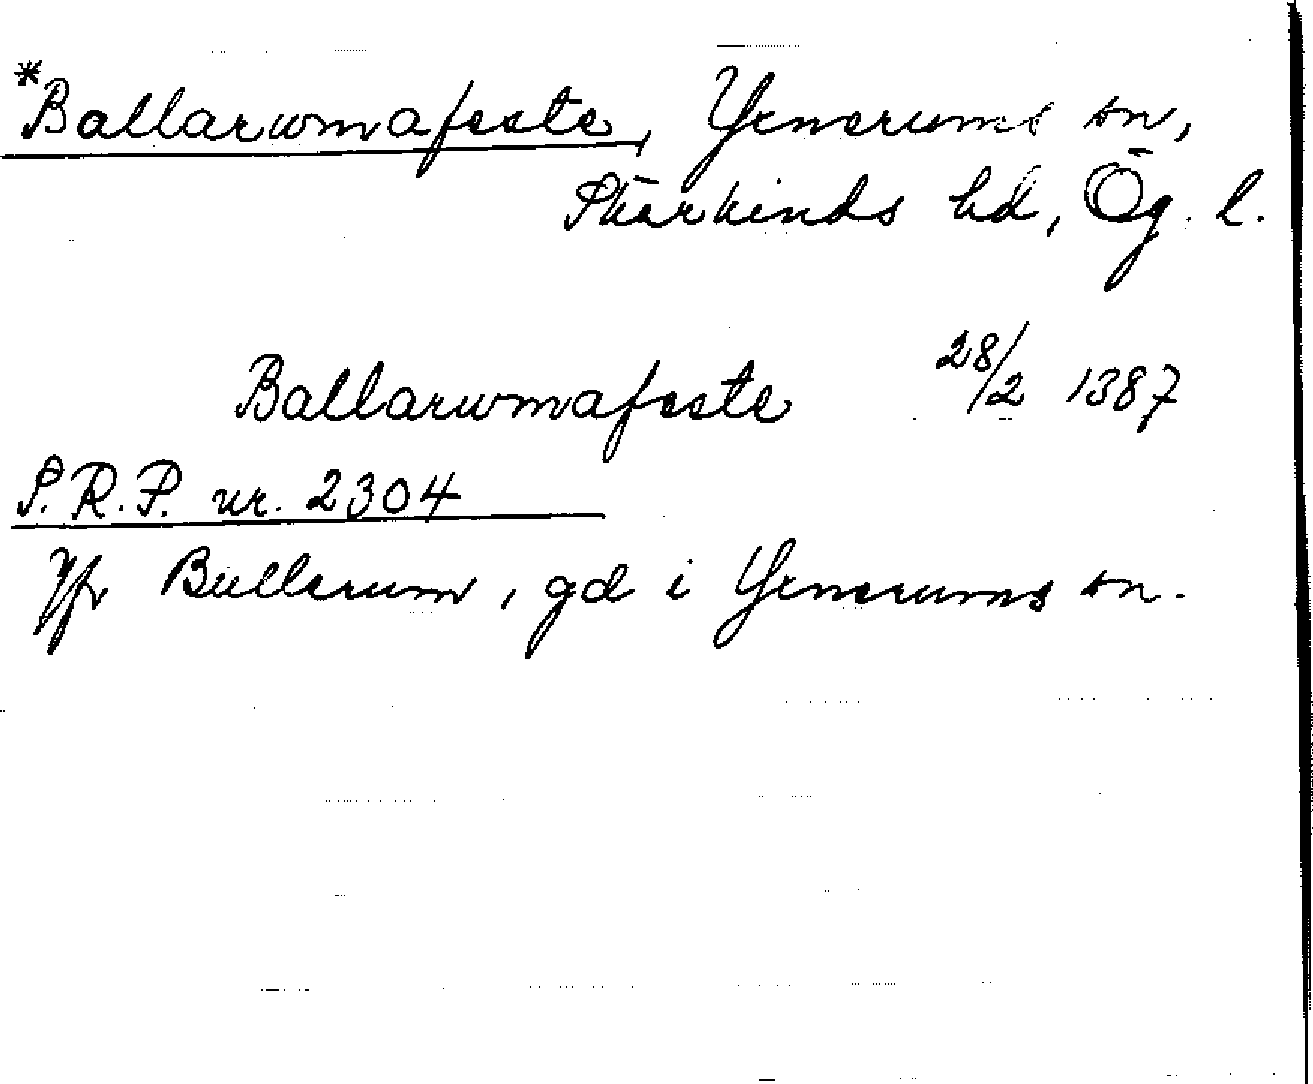 *Ballarumafeste, Yxnerums sn,
Skärkinds hd, Ög. l.
Ballarumafeste 28/2 1387
S.R.P. nr. 2304
Jfr Bullerum, gd i Yxnerums sn.